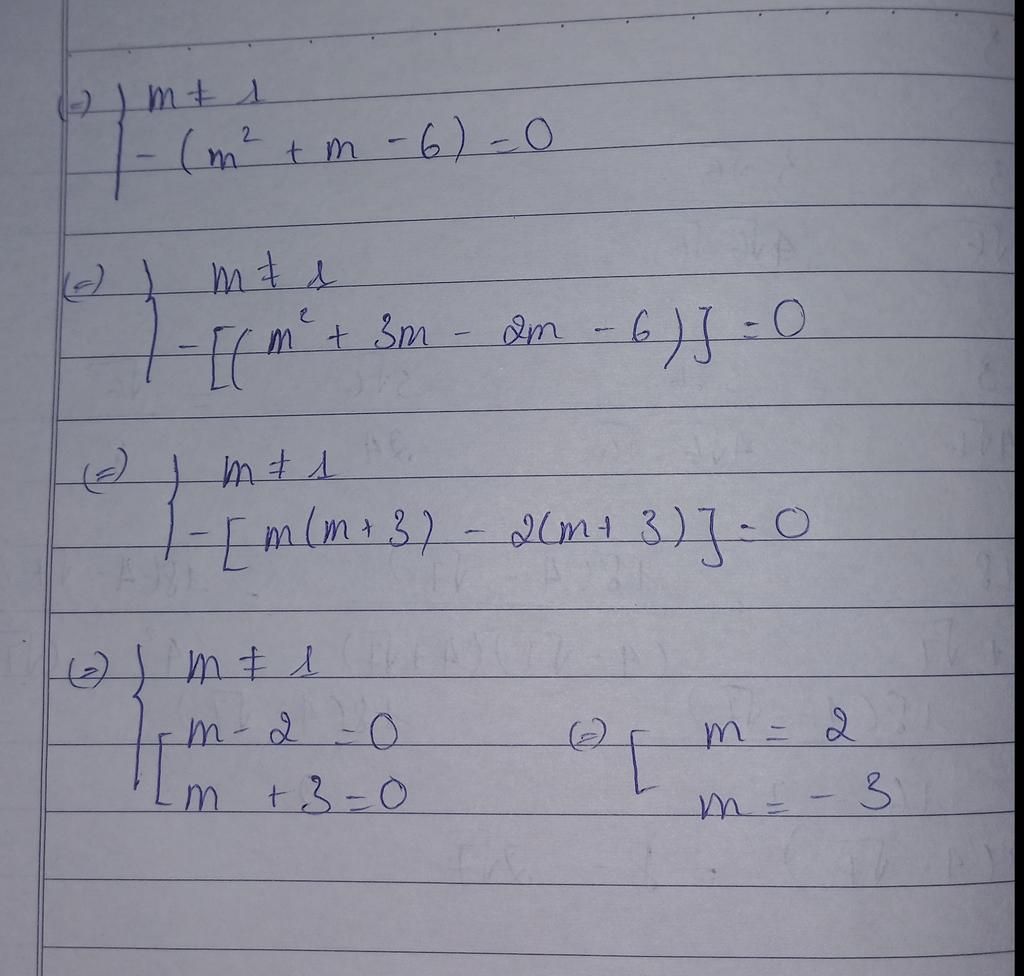 (=) { m ≠ 1
- (m² + m - 6) = 0
(=) { m ≠ 1
- [(m² + 3m - 2m - 6)] = 0
(=) { m ≠ 1
- [m(m + 3) - 2(m + 3)] = 0
(=) { m ≠ 1
[ m - 2 = 0 (=) [ m = 2
m + 3 = 0 m = - 3